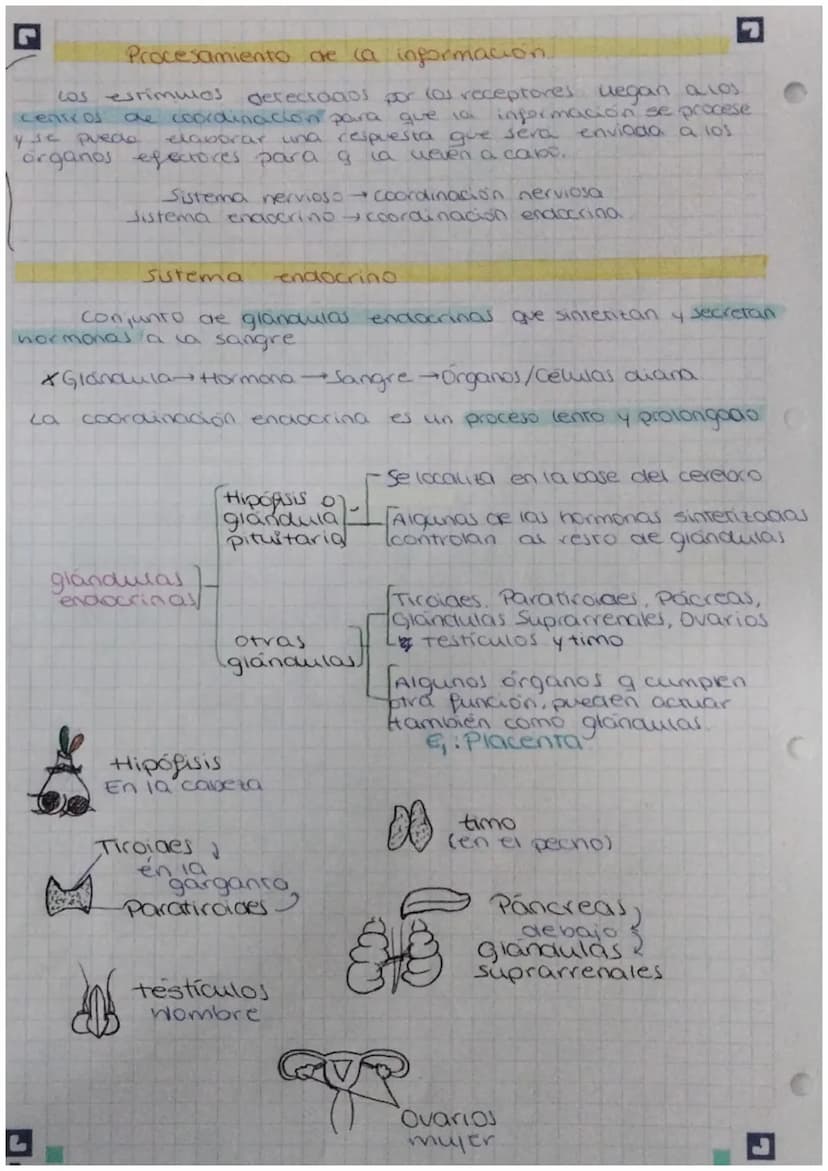 Procesamiento de la información
Los estímulos detectados por los receptores llegan a los
centros de coordinación para que la información se procese
y se pueda elaborar una respuesta que será enviada a los
órganos efectores para q la lleven a cabo.
Sistema nervioso → coordinación nerviosa
Sistema endocrino → coordinación endocrina
Sistema endocrino
Conjunto de glándulas endocrinas que sintentizan y secretan
hormonas a la sangre
* Glándula → Hormona → Sangre → Órganos/Células diana
La coordinación endocrina es un proceso lento y prolongado
glándulas
endocrinas
Hipófisis o
glándula
pituitaria
Se localiza en la base del cerebro
Algunas de las hormonas sinterizadas
controlan al resto de glándulas
otras
glándulas
Tiroides, Paratiroides, Páncreas,
Glándulas Suprarrenales, Ovarios
Testículos y timo
Algunos órganos q cumplen
otra función, pueden actuar
también como glándulas.
Ej: Placenta
Hipófisis
En la cabeza
Tiroides
en la
garganta
Paratiroides
testículos
Hombre
timo
(en el pecho)
Páncreas
debajo
glándulas
suprarrenales
Ovarios
mujer